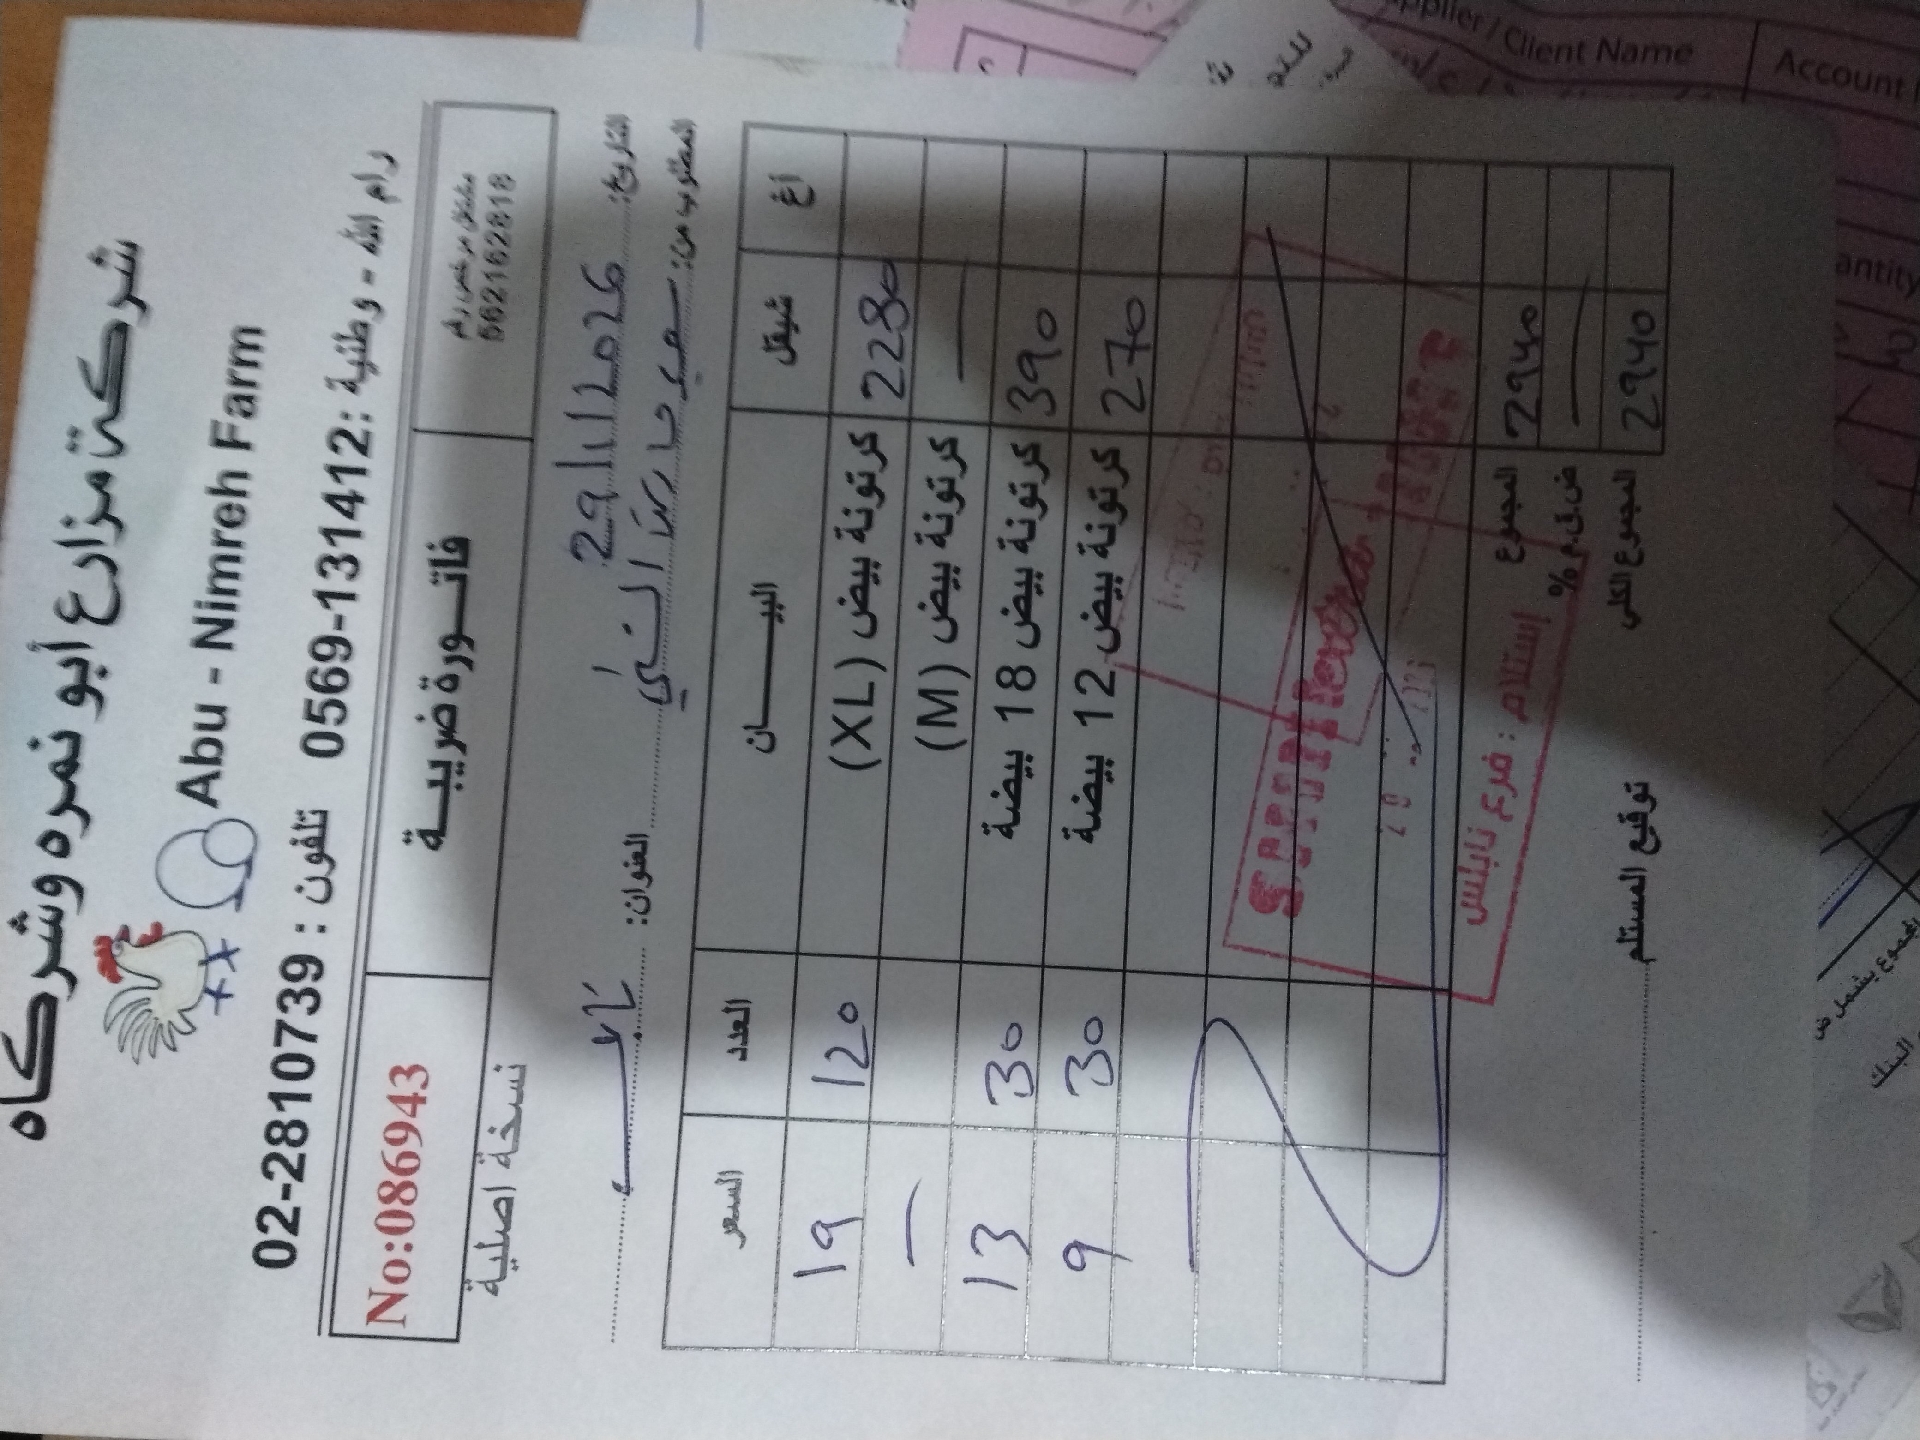 شركة مزارع أبو نمره وشركاه
Abu - Nimreh Farm
رام الله - وطنية: 0569-131412 تلفون : 02-2810739
مشتغل مرخص رقم
562162818
فاتورة ضريبية
No:086943
نسخة اصلية
التاريخ: 29/1/2026
المطلوب من: العنوان:
أغ شيقل البيان العدد السعر
2280 كرتونة بيض (XL) 120 19
— كرتونة بيض (M) —
390 كرتونة بيض 18 بيضة 30 13
270 كرتونة بيض 12 بيضة 30 9
استلام : فرع نابلس
2940 المجموع
— ض.ق.م %
2940 المجموع الكلي
توقيع المستلم
Supplier / Client Name
Account
antity